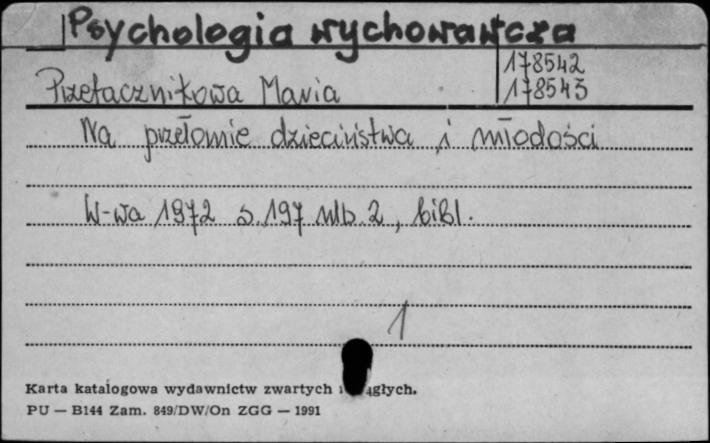 Psychologia wychowawcza
178542
Przetacznikowa Maria 178543
Na przełomie dzieciństwa i młodości
W-wa 1972 s. 197 nlb. 2, bibl.
1
Karta katalogowa wydawnictw zwartych i
PU — B144 Zam. 849/DW/On ZGG — 1991